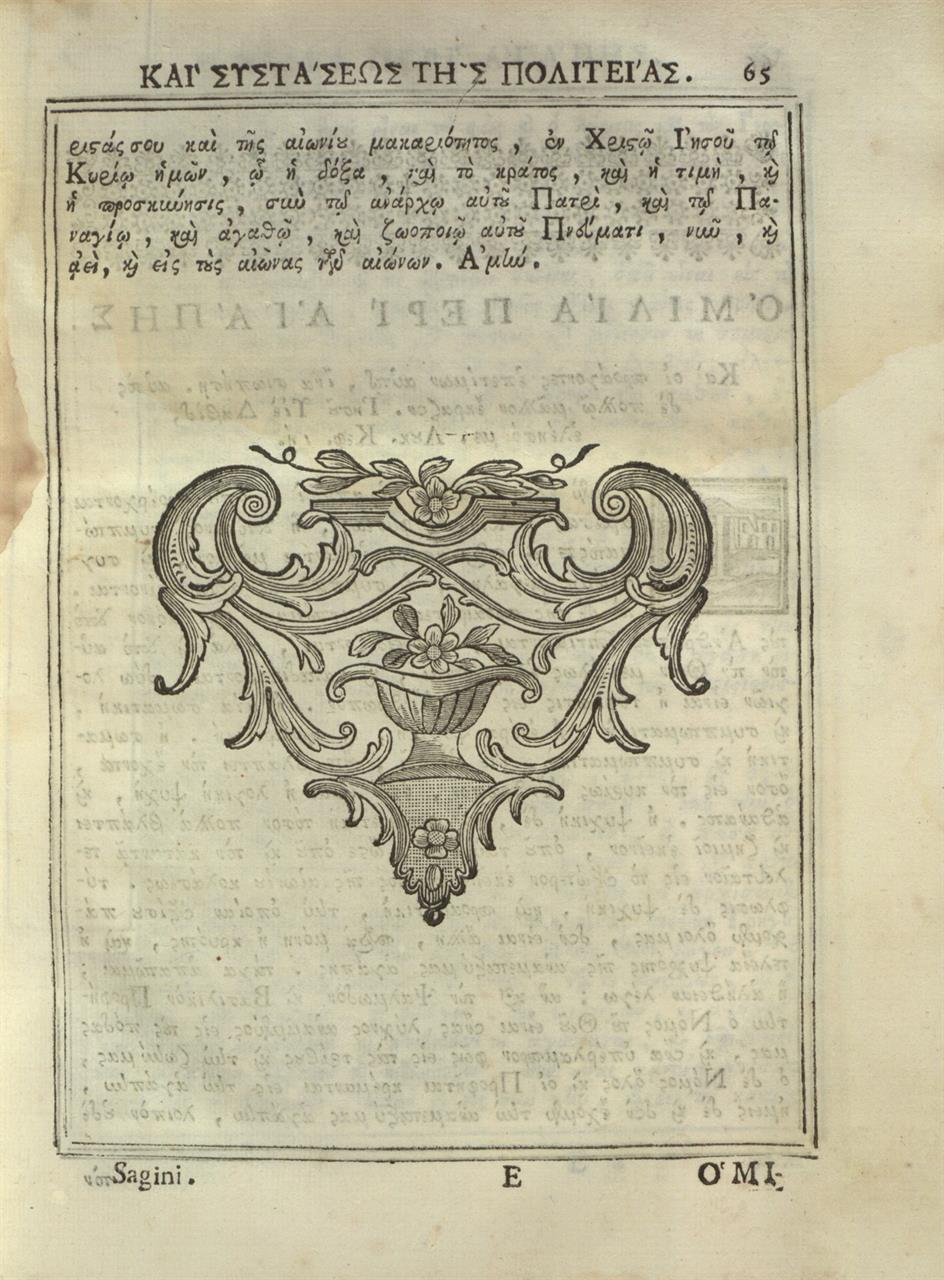 ΚΑΙ᾽ ΣΥΣΤΑ΄ΣΕΩΣ ΤΗ῀Σ ΠΟΛΙΤΕΙ΄ΑΣ. 65
ριστάς σου καὶ τῆς αἰωνίου μακαριότητος, ἐν Χριστῷ Ἰησοῦ τῷ
Κυρίῳ ἡμῶν, ᾧ ἡ δόξα, καὶ τὸ κράτος, καὶ ἡ τιμὴ, καὶ
ἡ προσκύνησις, σὺν τῷ ἀνάρχῳ αὐτοῦ Πατρὶ, καὶ τῷ Πα-
ναγίῳ, καὶ ἀγαθῷ, καὶ ζωοποιῷ αὐτοῦ Πνεύματι, νῦν, καὶ
ἀεὶ, καὶ εἰς τοὺς αἰῶνας τῶν αἰώνων. Ἀμήν.
Sagini. E Ὁ ΜΙ-